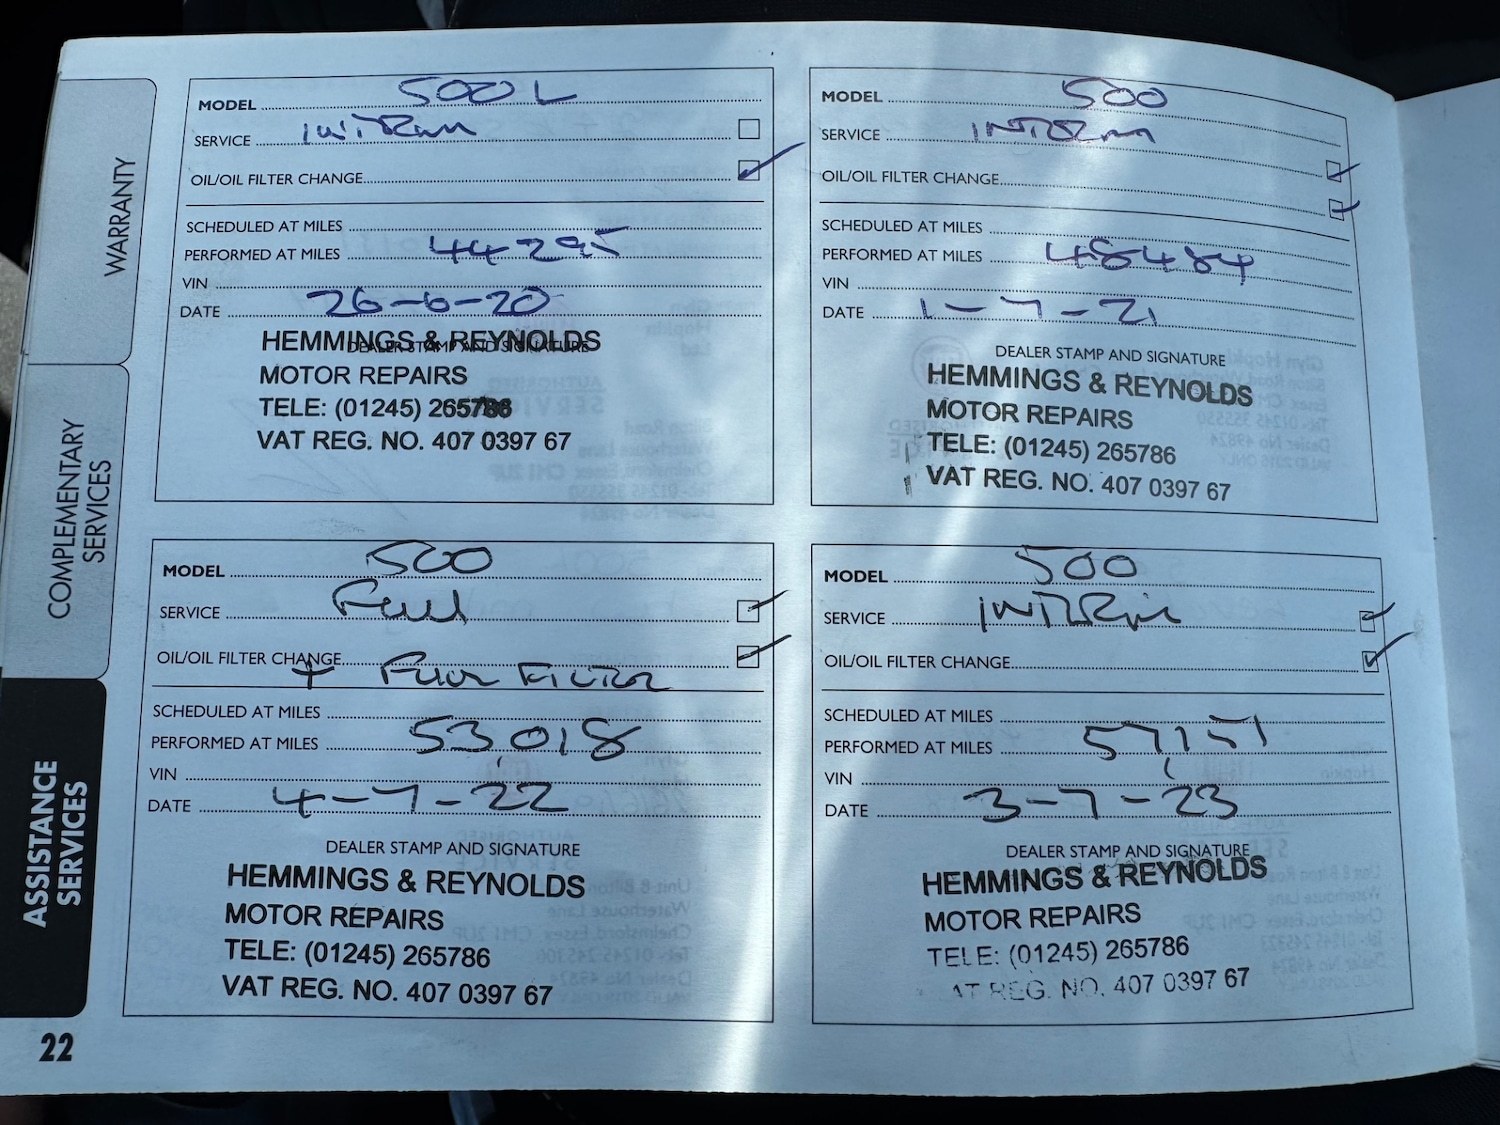 WARRANTY
COMPLEMENTARY
SERVICES
ASSISTANCE
SERVICES
22
MODEL 500L
SERVICE INTRim
OIL/OIL FILTER CHANGE
SCHEDULED AT MILES
PERFORMED AT MILES 44295
VIN
DATE 26-6-20
DEALER STAMP AND SIGNATURE
HEMMINGS & REYNOLDS
MOTOR REPAIRS
TELE: (01245) 265786
VAT REG. NO. 407 0397 67
MODEL 500
SERVICE INTRim
OIL/OIL FILTER CHANGE
SCHEDULED AT MILES
PERFORMED AT MILES 48484
VIN
DATE 1-7-21
DEALER STAMP AND SIGNATURE
HEMMINGS & REYNOLDS
MOTOR REPAIRS
TELE: (01245) 265786
VAT REG. NO. 407 0397 67
MODEL 500
SERVICE Full
OIL/OIL FILTER CHANGE
+ FILTER
SCHEDULED AT MILES
PERFORMED AT MILES 53,018
VIN
DATE 4-7-22
DEALER STAMP AND SIGNATURE
HEMMINGS & REYNOLDS
MOTOR REPAIRS
TELE: (01245) 265786
VAT REG. NO. 407 0397 67
MODEL 500
SERVICE INTRim
OIL/OIL FILTER CHANGE
SCHEDULED AT MILES
PERFORMED AT MILES 57,151
VIN
DATE 3-7-23
DEALER STAMP AND SIGNATURE
HEMMINGS & REYNOLDS
MOTOR REPAIRS
TELE: (01245) 265786
AT REG. NO. 407 0397 67